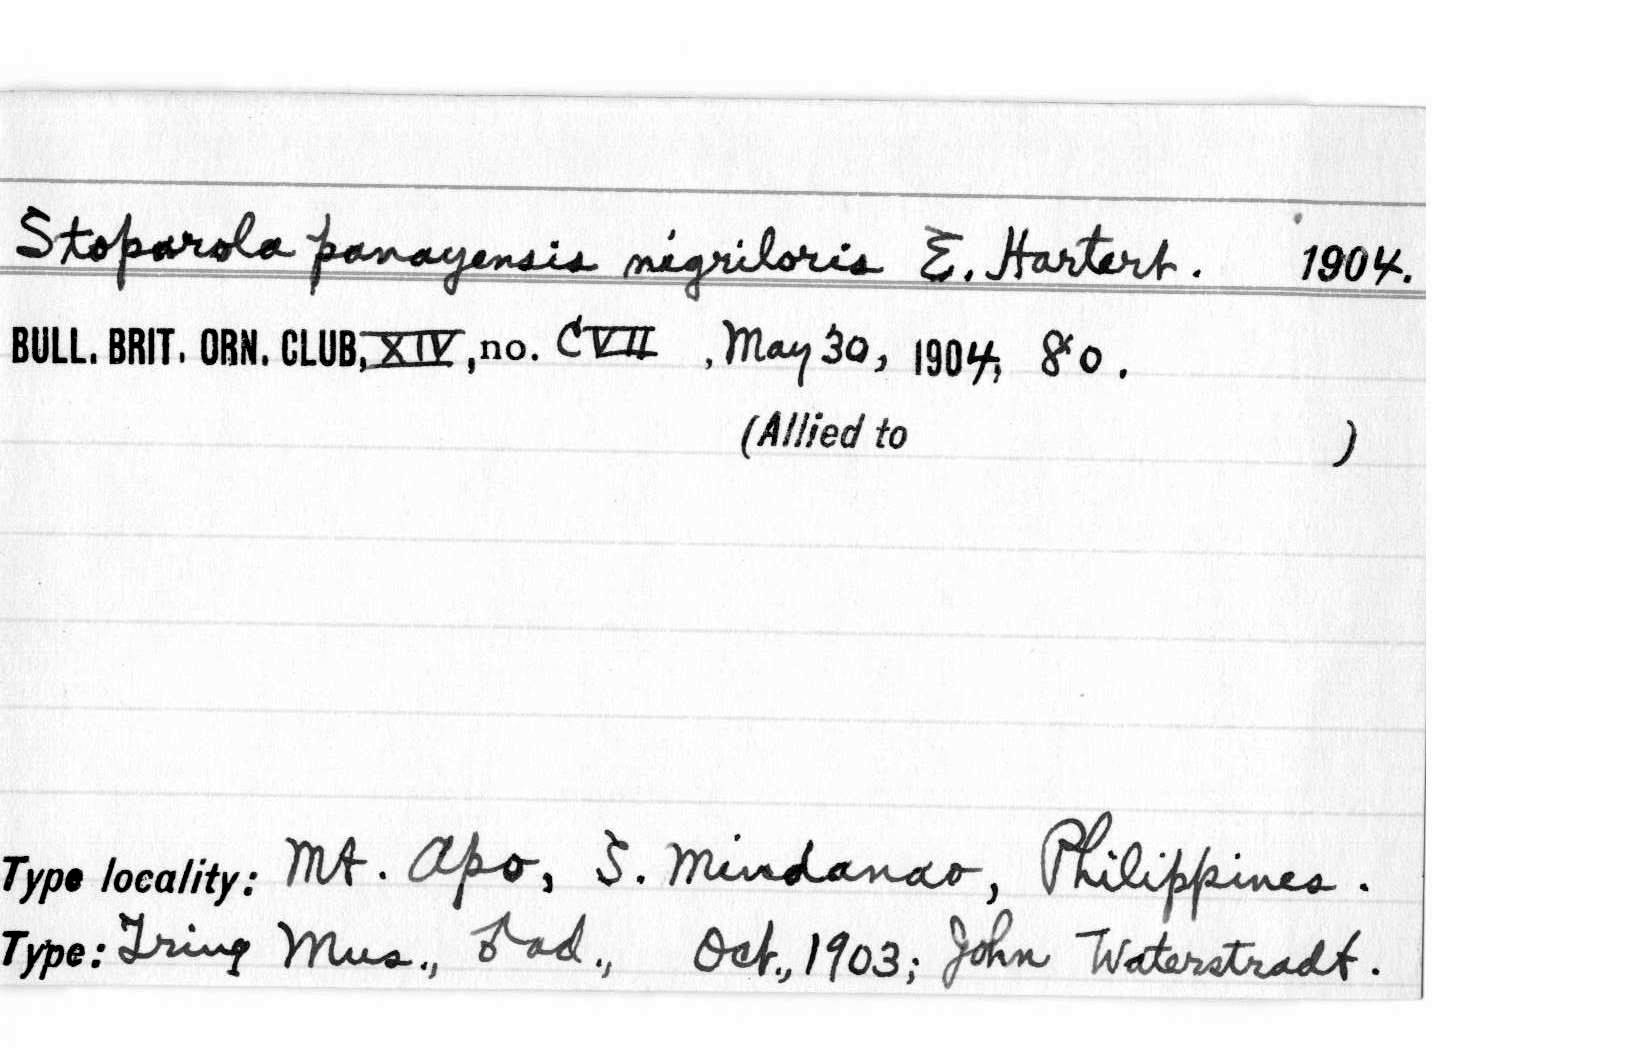 Stoparola panayensis nigriloris E. Hartert. 1904.
BULL. BRIT. ORN. CLUB, XIV, no. CVII , May 30, 1904, 80.
(Allied to )
Type locality: Mt. Apo, S. Mindanao, Philippines.
Type: Tring Mus., ad., Oct., 1903; John Waterstradt.